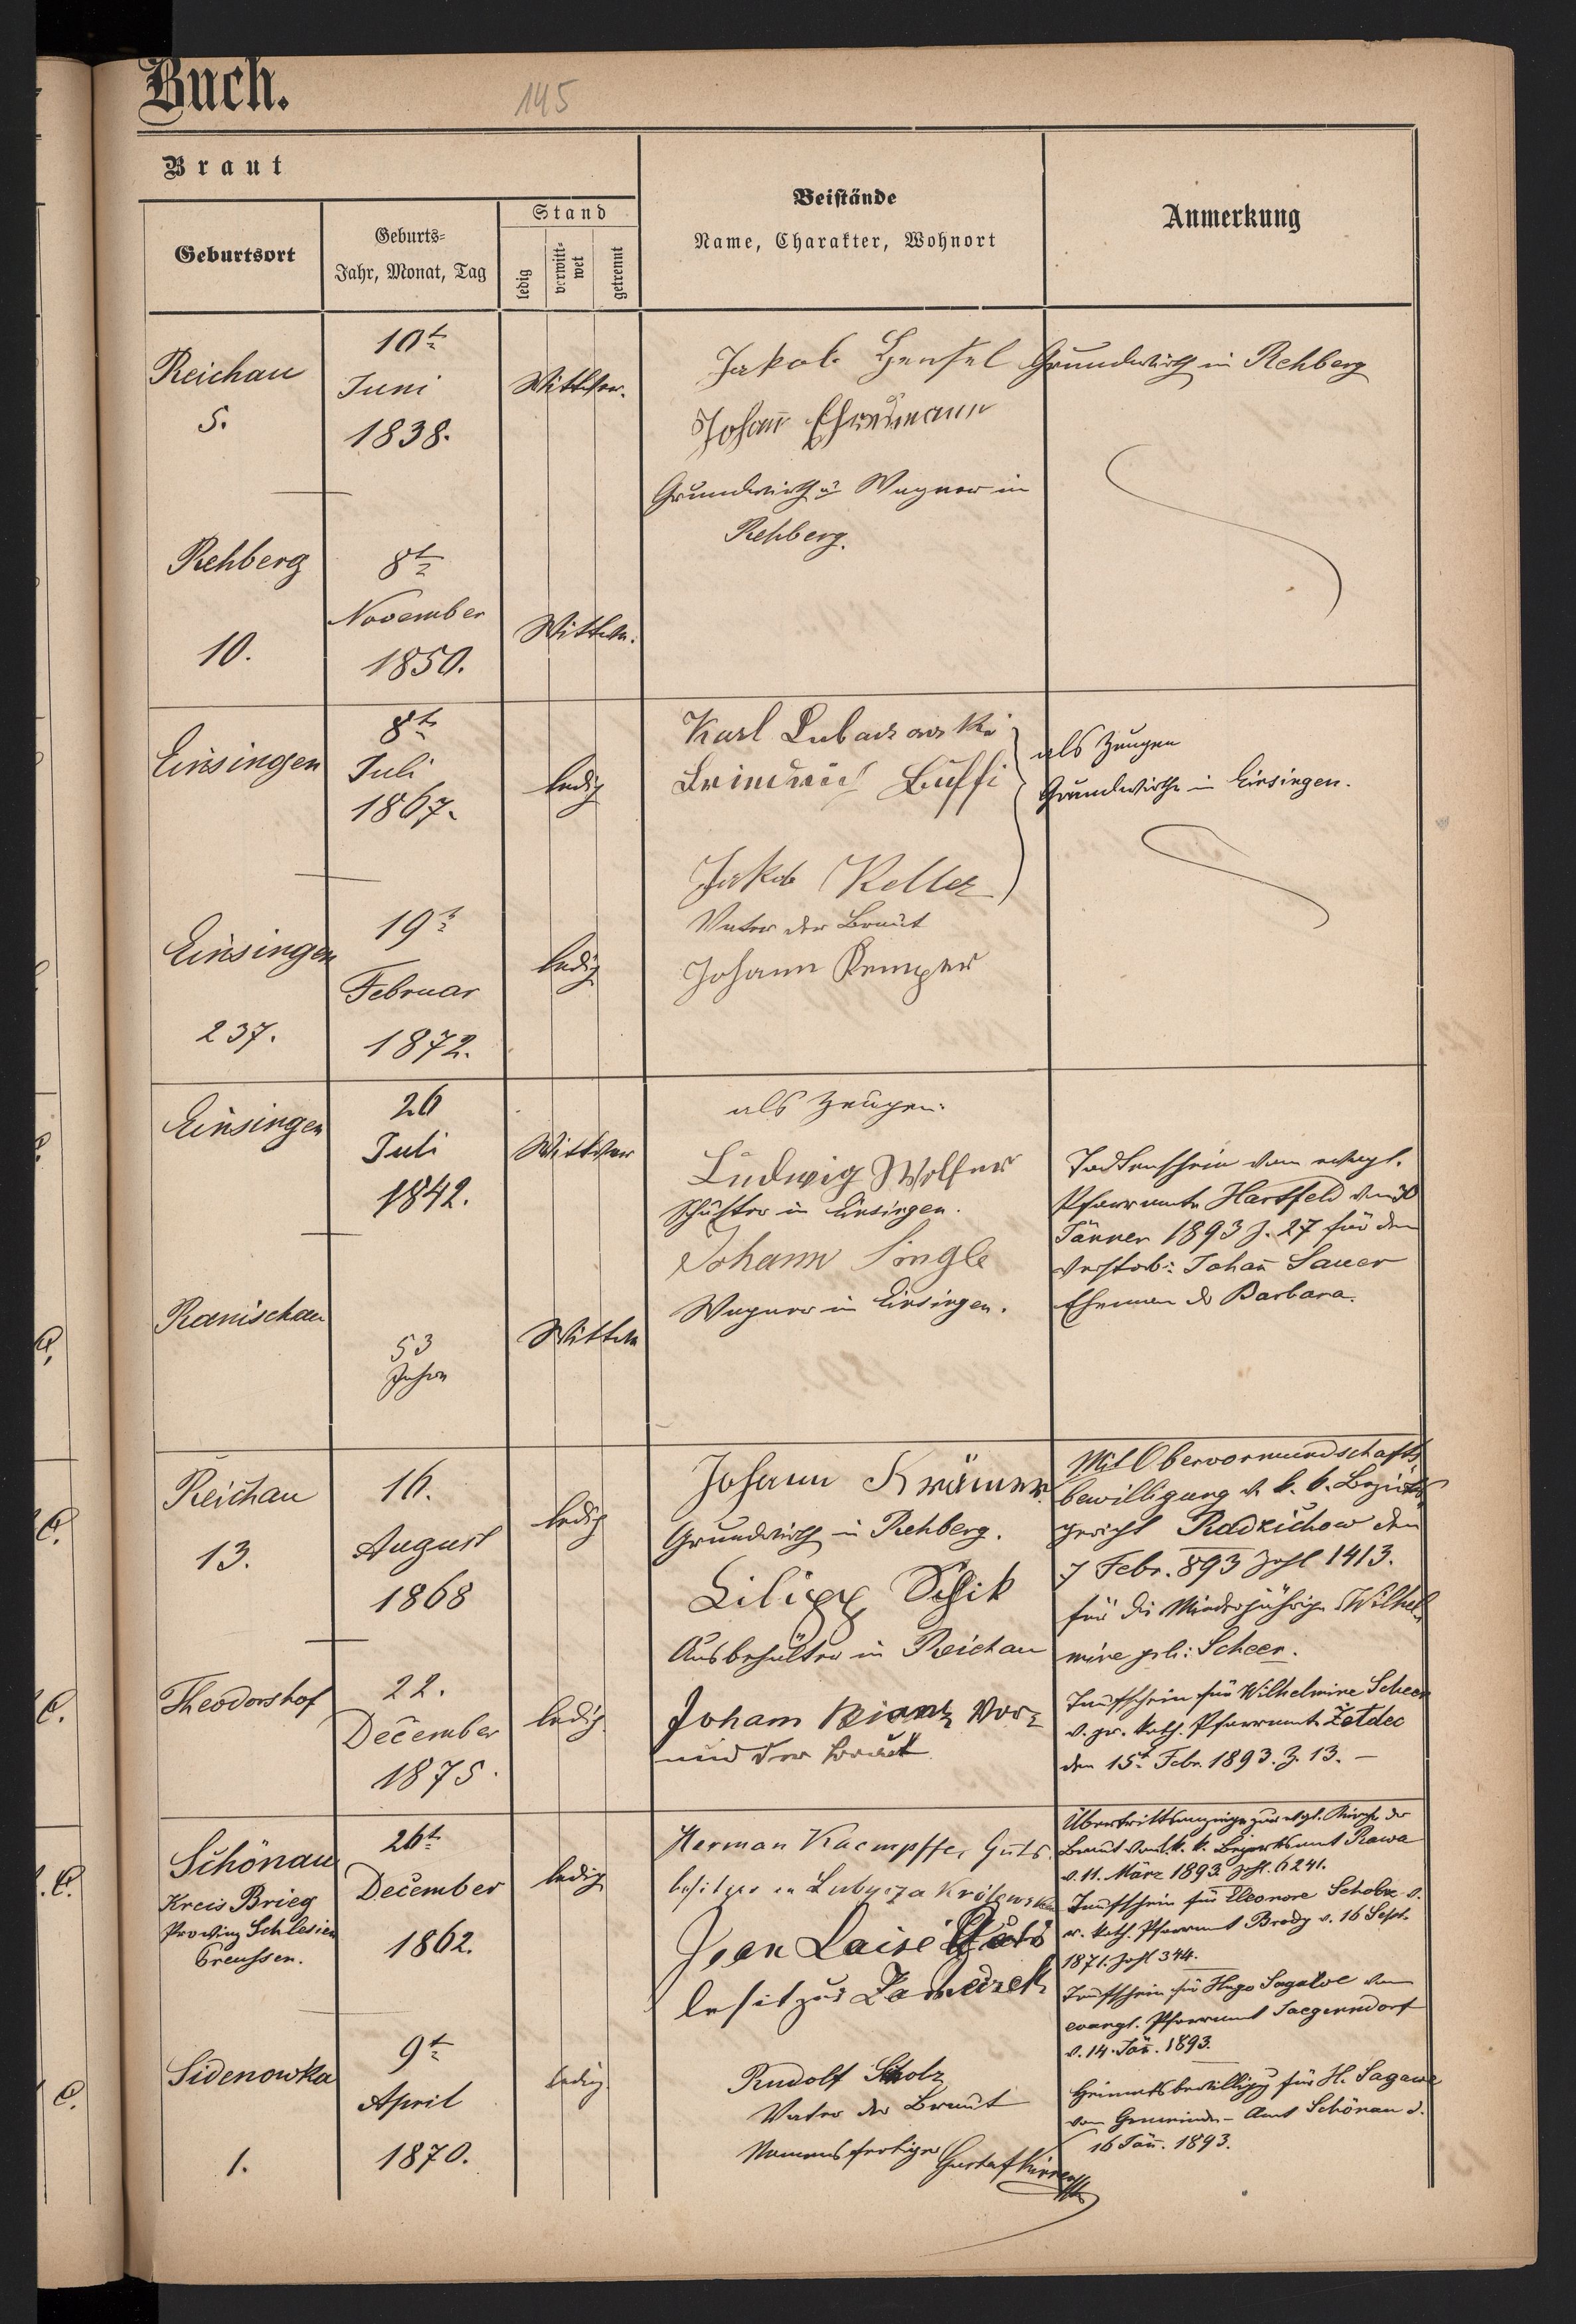 Buch.
145
Braut
Geburtsort
Geburts-
Jahr, Monat, Tag
Stand
ledig
verwitt-
wet
getrennt
Beistände
Name, Charakter, Wohnort
Anmerkung
Reichau
5.
10t
Juni
1838.
Wittwer.
Jakob Hensel Grundwirth in Rehberg
Johañ Ehresmann
Grundwirth u. Wagner in
Rehberg.
Rehberg
10.
8t
November
1850.
Wittwe.
Einsingen
8t
Juli
1867.
ledig
Karl Lubaczowski
Buffi
als Zeugen
Grundwirthe in Einsingen.
Jakob Keller
Vater der Braut
Johann Kemper
Einsingen
237.
19t
Februar
1872.
ledig
Einsingen
26
Juli
1842.
Wittwer
als Zeugen:
Ludwig Wolfer
Schuster in Einsingen.
Johann Single
Wagner in Einsingen.
Todtenschein vom evagl.
Pfarramte Hartfeld
Jänner 1893 Z. 27 für den
verstorb: Johañ Sauer
Ehemann der Barbara.
Ranischau
53
Jahre
Wittwe
Reichau
13.
16.
August
1868
ledig
Johann Krämer
Grundwirth in Rehberg.
Filipp Schik
Ausbehälter in Reichau
Johann Bisanz Vor-
mund der Braut
Mit Obervormundschafts
bewilligung v. k. k. Bezirks
gericht Radzichow den
7 Febr. 893 Zahl 1413.
für die Minderjährige Wilhel
mine geb: Scheer.
Taufschein für Wilhelmine Scheer
v. gr. kath. Pfarramte Żetdec
den 15t Febr. 1893. Z. 13. –
Theodorshof
22.
December
1875.
ledig
Schönau
Kreis Brieg
Provinz Schlesien
Preussen.
26t
December
1862.
ledig
Herman Kaempffe, Guts.
besitzer in Lubycza Królewska
Jean Laise Guts
besitzer
Übertrittsanzeige zur evgl. Kirche der
Braut vom k. k. Bezirksamt Rawa
v. 11. März 1893. Zhl. 6241.
Taufschein für Eleonore Scholz v.
r. kath. Pfarramt Brody v. 16 Sept.
1871. Zahl 344.
Taufschein für Hugo vom
evangl. Pfarramt Jaegerndorf
v. 14. Jäñ. 1893.
Heimatsbewilligg für H. Sagawe
vom Gemeinde-Amt Schönau d.
16 Jäñ. 1893.
Sidenowka
1.
9t
April
1870.
ledig
Rudolf Scholz
Vater der Braut
Namensfertiger Gustaf